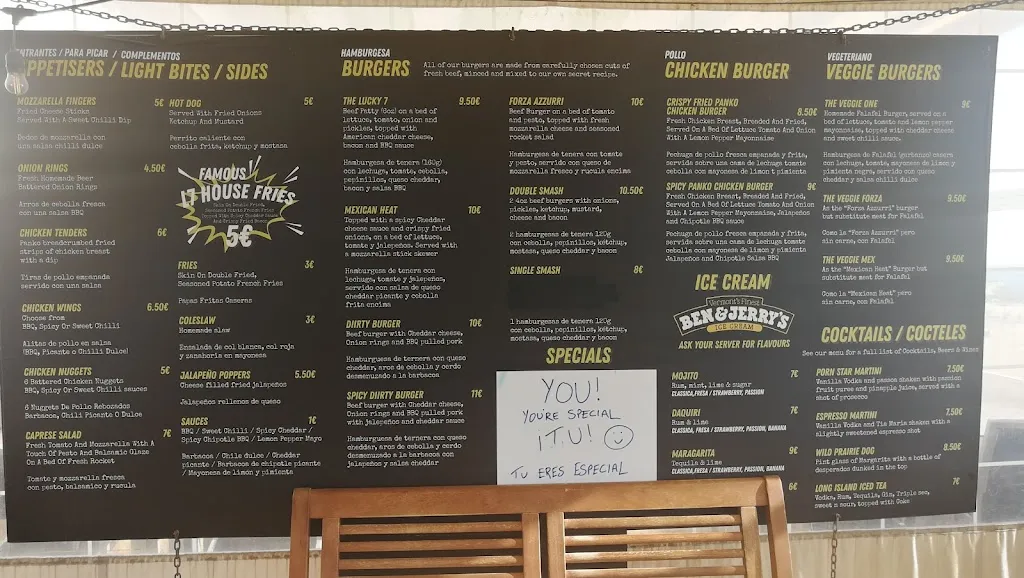 ENTRANTES / PARA PICAR / COMPLEMENTOS
APPETISERS / LIGHT BITES / SIDES
MOZZARELLA FINGERS 5€
Fried Cheese Sticks
Served With A Sweet Chilli Dip
Dedos de mozzarella con
una salsa chilli dulce
ONION RINGS 4.50€
Fresh Homemade Beer
Battered Onion Rings
Arros de cebolla fresca
con una salsa BBQ
CHICKEN TENDERS 6€
Panko breadcrumbed fried
strips of chicken breast
with a dip
Tiras de pollo empanada
servido con una salsa
CHICKEN WINGS 6.50€
Choose from
BBQ, Spicy Or Sweet Chilli
Alitas de pollo en salsa
(BBQ, Picante o Chilli Dulce)
CHICKEN NUGGETS 5€
6 Battered Chicken Nuggets
BBQ, Spicy Or Sweet Chilli sauces
6 Nuggets De Pollo Rebozados
Barbacoa, Chili Picante O Dulce
CAPRESE SALAD 7€
Fresh Tomato And Mozzarella With A
Touch Of Pesto And Balsamic Glaze
On A Bed Of Fresh Rocket
Tomato y mozzarella fresca
con pesto, balsamico y rucula
HOT DOG 5€
Served With Fried Onions
Ketchup And Mustard
Perrito caliente con
cebolla frita, ketchup y mostaza
FAMOUS
17 HOUSE FRIES
Skin On Double Fried,
Seasoned Potato French Fries
Topped With Spicy Cheddar Sauce
And Crispy Fried Bacon
5€
FRIES 3€
Skin On Double Fried,
Seasoned Potato French Fries
Papas Fritas Caseras
COLESLAW 3€
Homemade slaw
Ensalada de col blanca, col roja
y zanahoria en mayonesa
JALAPEÑO POPPERS 5.50€
Cheese filled fried jalapeños
Jalapeños rellenos de queso
SAUCES 1€
BBQ / Sweet Chilli / Spicy Cheddar /
Spicy Chipotle BBQ / Lemon Pepper Mayo
Barbacoa / Chile dulce / Cheddar
picante / Barbacoa de chipotle picante
/ Mayonesa de limon y pimienta
HAMBURGESA
BURGERS
All of our burgers are made from carefully chosen cuts of
fresh beef, minced and mixed to our own secret recipe.
THE LUCKY 7 9.50€
Beef Patty (6oz) on a bed of
lettuce, tomato, onion and
pickles, topped with
American cheddar cheese,
bacon and BBQ sauce
Hamburguesa de tenera (160g)
con lechuga, tomato, cebolla,
pepinillos, queso cheddar,
bacon y salsa BBQ
MEXICAN HEAT 10€
Topped with a spicy Cheddar
cheese sauce and crispy fried
onions, on a bed of lettuce,
tomato y jalapeños. Served with
a mozzarella stick skewer
Hamburgesa de tenera con
lechuga, tomate y jalapeños,
servido con salsa de queso
cheddar picante y cebolla
frita encima
DIRTY BURGER 10€
Beef burger with Cheddar cheese,
Onion rings and BBQ pulled pork
Hamburguesa de ternera con queso
cheddar, aros de cebolla y cerdo
desmenuzado a la barbacoa
SPICY DIRTY BURGER 11€
Beef burger with Cheddar cheese,
Onion rings and BBQ pulled pork
with jalapeños and cheddar sauce
Hamburguesa de ternera con queso
cheddar, aros de cebolla y cerdo
desmenuzado a la barbacoa con
jalapeños y salsa cheddar
FORZA AZZURRI 10€
Beef Burger on a bed of tomato
and pesto, topped with fresh
mozzarella cheese and seasoned
rocket salad
Hamburguesa de tenera con tomate
y pesto, servido con queso de
mozzarella fresco y rucula encima
DOUBLE SMASH 10.50€
2 4oz beef burgers with onions,
pickles, ketchup, mustard,
cheese and bacon
2 hamburguesas de tenera 120g
con cebolla, pepinillos, ketchup,
mostaza, queso cheddar y bacon
SINGLE SMASH 8€
1 hamburguesas de tenera 120g
con cebolla, pepinillos, ketchup,
mostaza, queso cheddar y bacon
SPECIALS
YOU!
YOU'RE SPECIAL
IT.U!
TU ERES ESPECIAL
POLLO
CHICKEN BURGER
CRISPY FRIED PANKO
CHICKEN BURGER 8.50€
Fresh Chicken Breast, Breaded And Fried,
Served On A Bed Of Lettuce Tomato And Onion
With A Lemon Pepper Mayonnaise
Pechuga de pollo fresca empanada y frita,
servida sobre una cama de lechuga tomate
cebolla con mayonesa de limon t pimienta
SPICY PANKO CHICKEN BURGER 9€
Fresh Chicken Breast, Breaded And Fried,
Served On A Bed Of Lettuce Tomato And Onion
With A Lemon Pepper Mayonnaise, Jalapeños
and Chipotle BBQ sauce
Pechuga de pollo fresca empanada y frita,
servida sobre una cama de lechuga tomate
cebolla con mayonesa de limon y pimienta
Jalapenos and Chipotle Salsa BBQ
ICE CREAM
Vermont's Finest
BEN & JERRY'S
ICE CREAM
ASK YOUR SERVER FOR FLAVOURS
MOJITO 7€
Rum, mint, lime & sugar
CLASSICA, FRESA / STRAWBERRY, PASSION
DAQUIRI 7€
Rum & lime
CLASSICA, FRESA / STRAWBERRY, PASSION, BANANA
MARAGARITA 9€
Tequila & lime
CLASSICA, FRESA / STRAWBERRY, PASSION, BANANA
6€
VEGETERIANO
VEGGIE BURGERS
THE VEGGIE ONE 9€
Homemade Falafel Burger, served on a
bed of lettuce, tomato and lemon pepper
mayonnaise, topped with cheddar cheese
and sweet chilli sauce.
Hamburgesa de Falafel (garbanzo) casera
con lechuga, tomato, mayonesa de limon y
pimienta negra, servido con queso
cheddar y salsa chilli dulce
THE VEGGIE FORZA 9.50€
As the "Forza Azzurri" burger
but substitute meat for Falafel
Como la "Forza Azzurri" pero
sin carne, con Falafel
THE VEGGIE MEX 9.50€
As the "Mexican Heat" Burger but
substitute meat for Falafel
Como la "Mexican Heat" pero
sin carne, con Falafel
COCKTAILS / COCTELES
See our menu for a full list of Cocktails, Beers & Wines
PORN STAR MARTINI 7.50€
Vanilla Vodka and passoa shaken with passion
fruit puree and pineapple juice, served with a
shot of prosecco
ESPRESSO MARTINI 7.50€
Vanilla Vodka and Tia Maria shaken with a
slightly sweetened espresso shot
WILD PRAIRIE DOG 8.50€
Pint glass of Margarita with a bottle of
desperados dunked in the top
LONG ISLAND ICED TEA 7€
Vodka, Rum, Tequila, Gin, Triple sec,
sweet n sour, topped with Coke